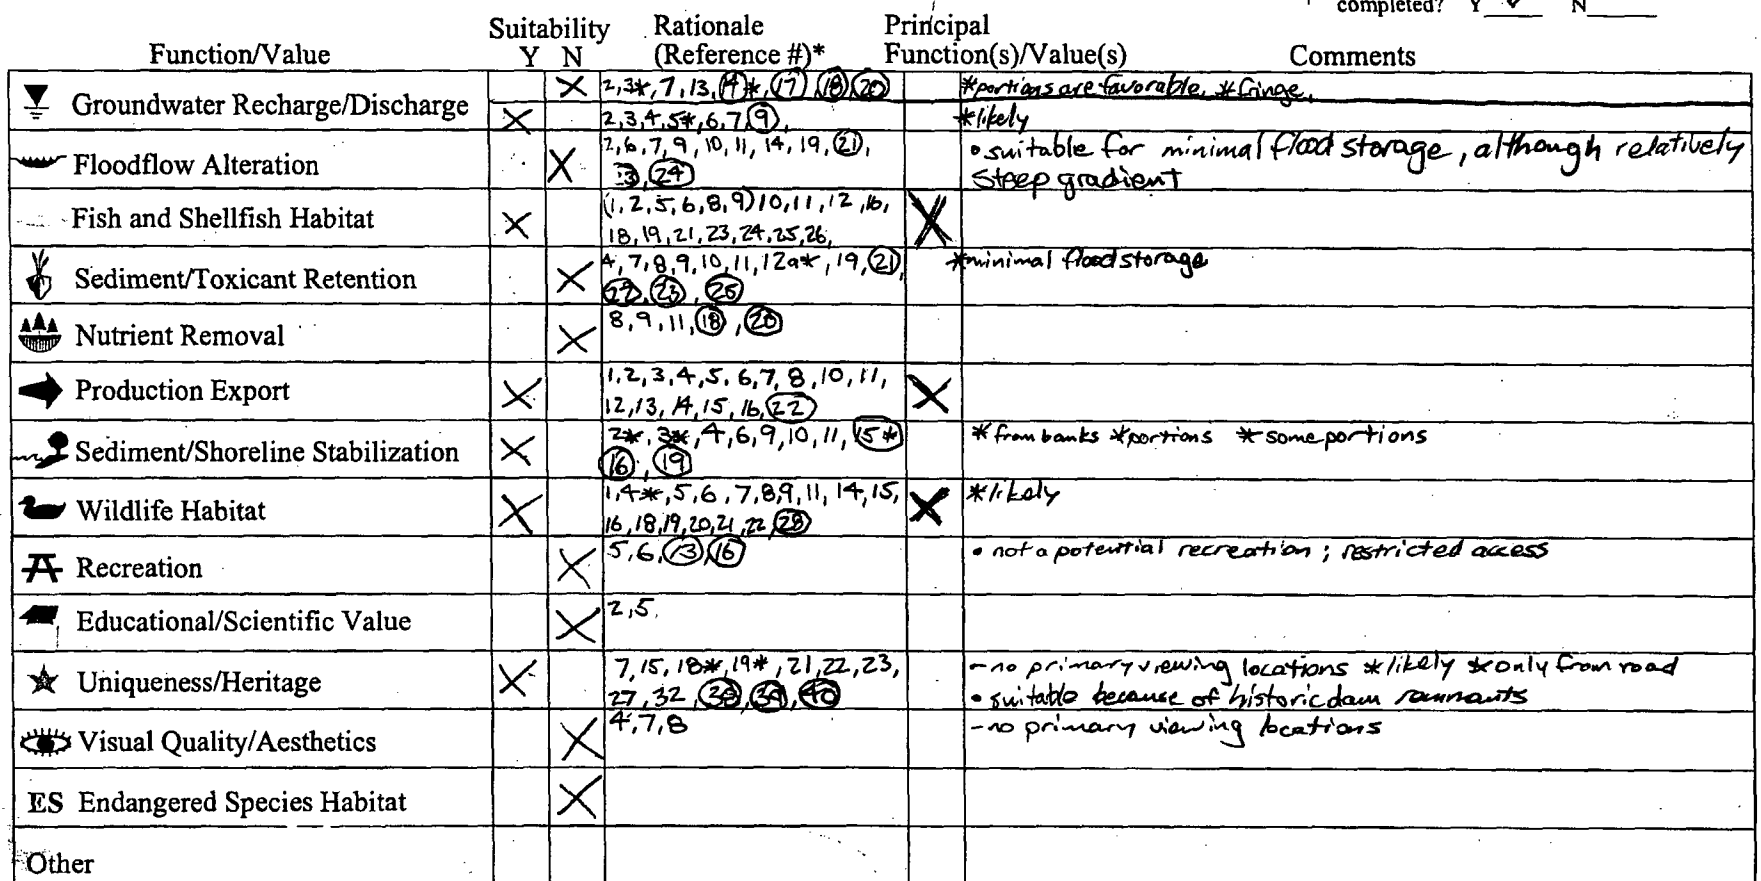 completed? Y ✓ N
Suitability Rationale Principal
Function/Value Y N (Reference #)* Function(s)/Value(s) Comments
Groundwater Recharge/Discharge
X 2,3*,7,13,14*,17,18,20 *portions are favorable, *fringe,
X 2,3,4,5*,6,7,9, *likely
Floodflow Alteration X 2,6,7,9,10,11,14,19,21, •suitable for minimal flood storage, although relatively
24 steep gradient
Fish and Shellfish Habitat X (1,2,5,6,8,9)10,11,12,16, X
18,19,21,23,24,25,26,
Sediment/Toxicant Retention X 4,7,8,9,10,11,12a*,19,21, *minimal flood storage
22,23,25
Nutrient Removal X 8,9,11,18,20
Production Export X 1,2,3,4,5,6,7,8,10,11, X
12,13,14,15,16,22
Sediment/Shoreline Stabilization X 2*,3*,4,6,9,10,11,15* *from banks *portions *some portions
16,19
Wildlife Habitat X 1,4*,5,6,7,8,9,11,14,15, X *likely
16,18,19,20,21,22,23
Recreation X 5,6,13,16 •not a potential recreation; restricted access
Educational/Scientific Value X 2,5,
Uniqueness/Heritage X 7,15,18*,19*,21,22,23, -no primary viewing locations *likely *only from road
27,32, •suitable because of historic dam remnants
Visual Quality/Aesthetics X 4,7,8 -no primary viewing locations
ES Endangered Species Habitat X
Other